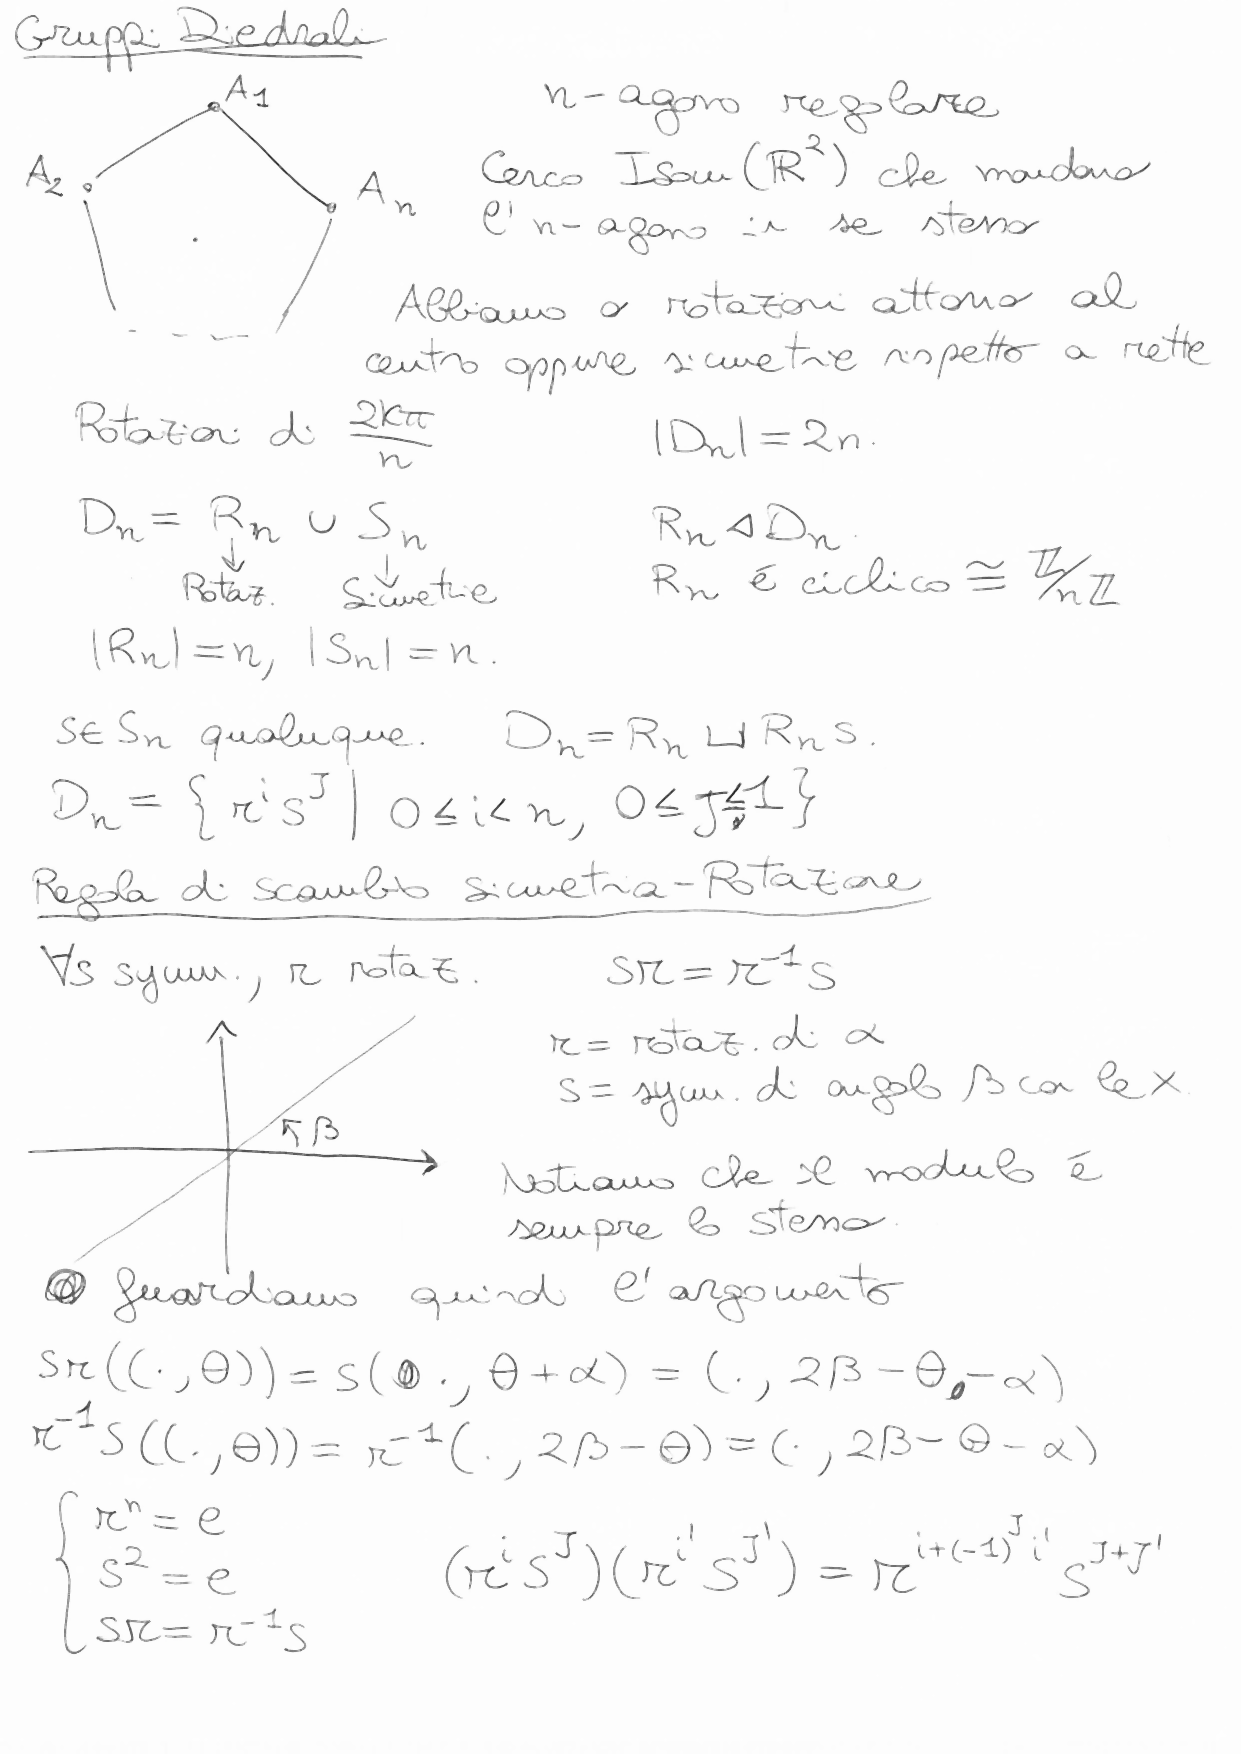 Gruppi Diedrali
A1
A2
An
n-agono regolare
Cerco Isom(ℝ²) che mandano
l'n-agono in se stesso
Abbiamo o rotazioni attorno al
centro oppure simmetrie rispetto a rette
Rotazioni di 2kπ/n
|Dn| = 2n.
Dn = Rn ∪ Sn
↓ ↓
Rotaz. Simmetrie
Rn ◁ Dn.
Rn é ciclico ≅ ℤ/nℤ
|Rn| = n, |Sn| = n.
s∈Sn qualunque. Dn = Rn ⊔ Rn s.
Dn = {r^i s^J | 0 ≤ i < n, 0 ≤ J ≤ 1}
Regola di scambio simmetria-Rotazione
∀s symm., r rotaz. sr = r⁻¹s
r = rotaz. di α
s = symm. di angolo β con le x
β
Notiamo che il modulo é
sempre lo stesso.
Guardiamo quindi l'argomento
sr((·, θ)) = s(·, θ+α) = (·, 2β-θ-α)
r⁻¹s((·, θ)) = r⁻¹(·, 2β-θ) = (·, 2β-θ-α)
{ rⁿ = e
s² = e
sr = r⁻¹s
(r^i s^J)(r^i' s^J') = r^(i+(-1)^J i') s^(J+J')